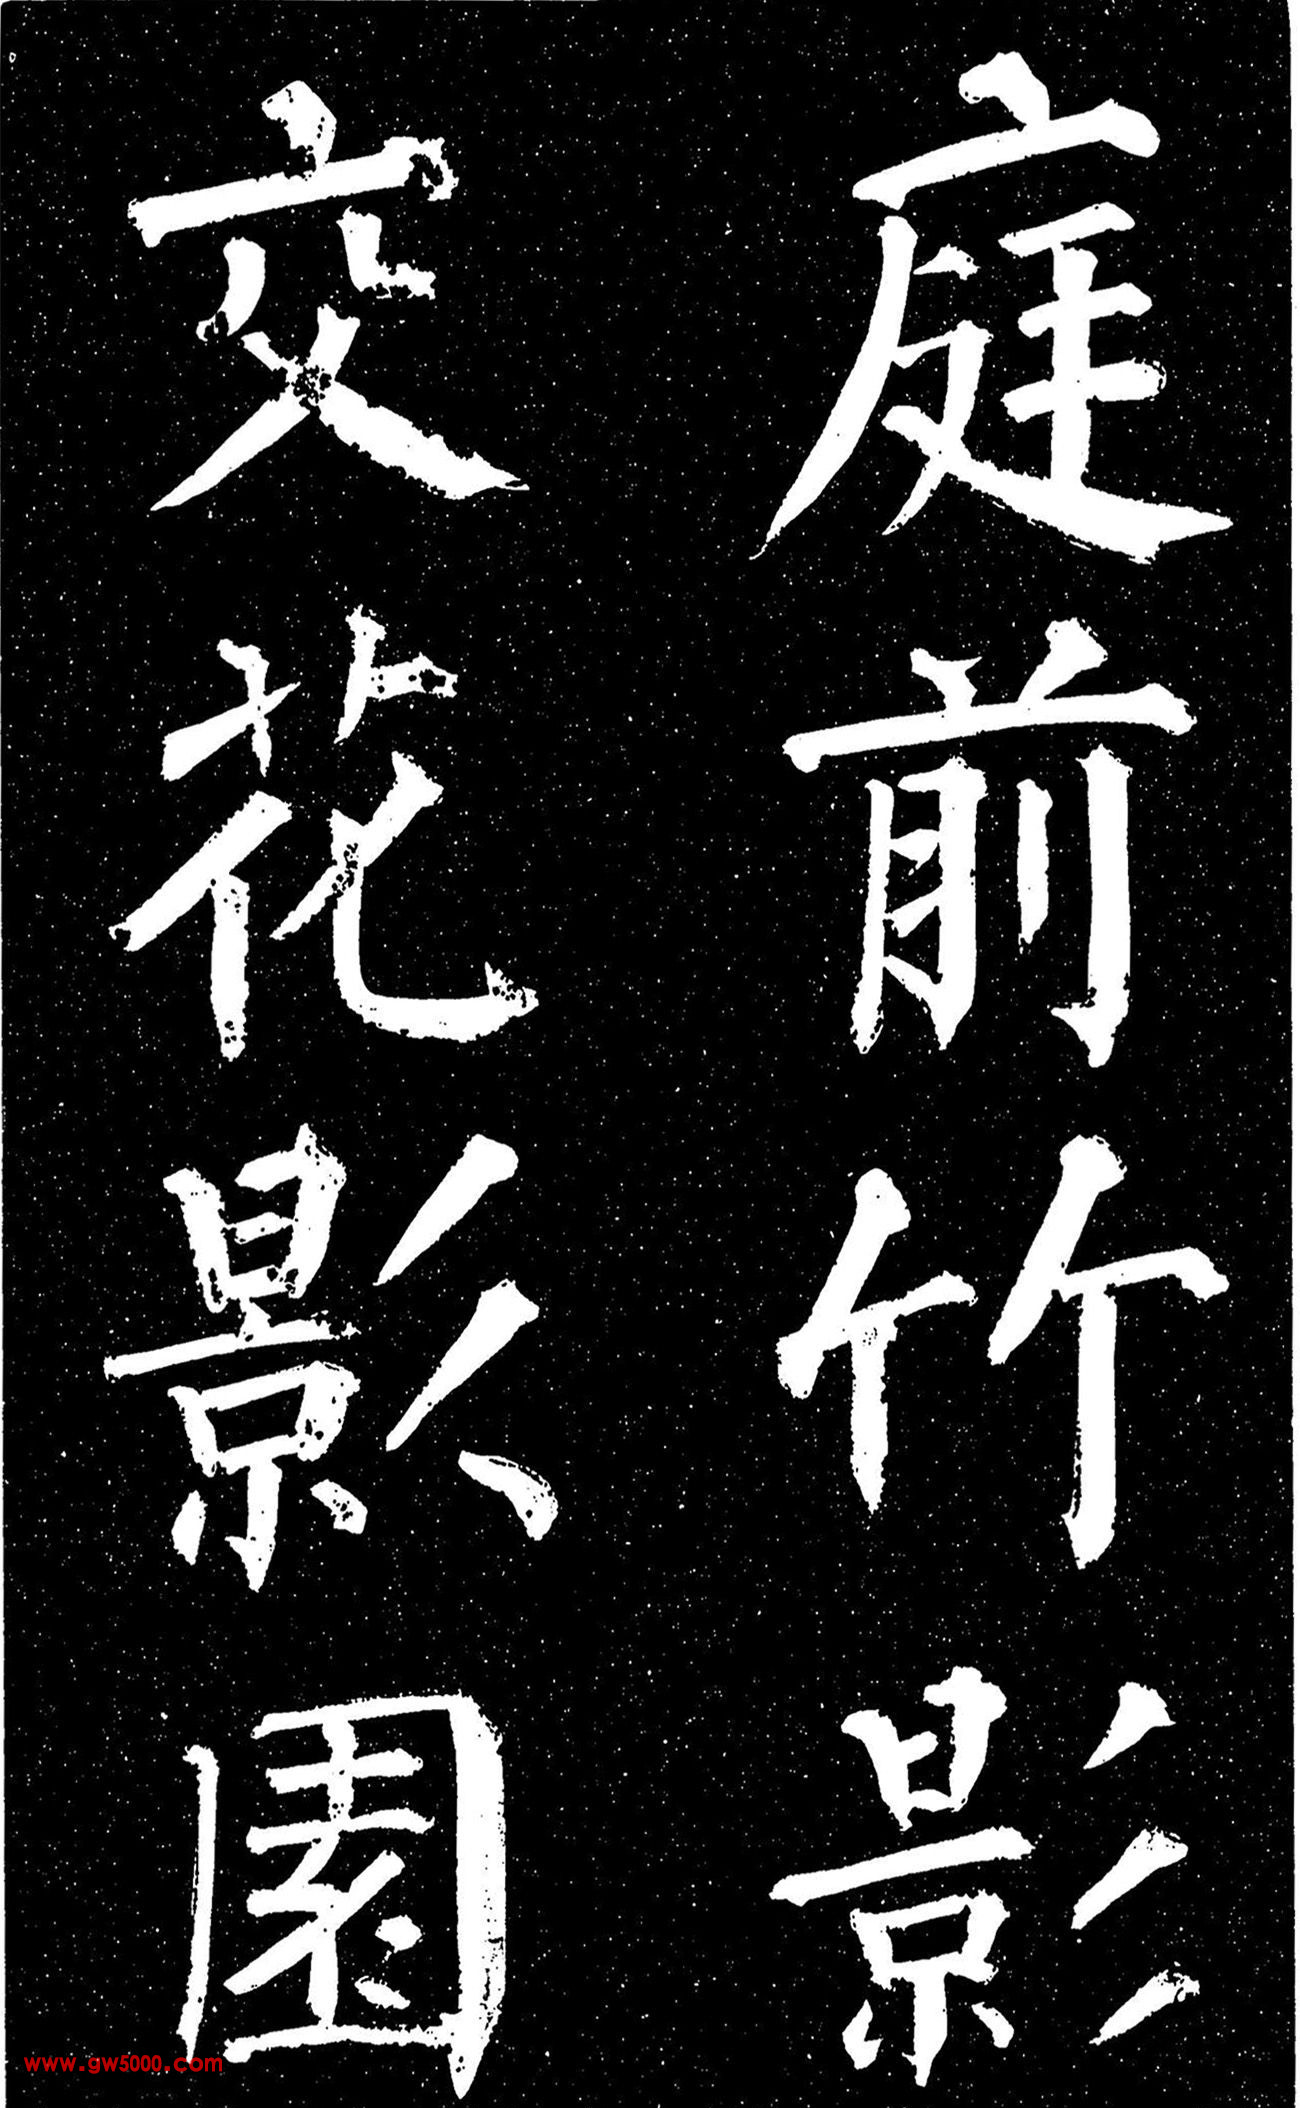 庭前竹影
交花影園
www.gw5000.com